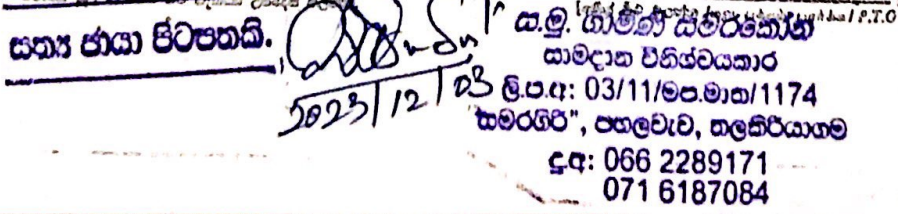 සත්‍ය ඡායා පිටපතකි.
2023/12/03
ස.මු. ගාමිණී සමරකෝන්
සාමදාන විනිශ්චයකාර
ලි.ප.අ: 03/11/මප.මාත/1174
"සමරගිරි", පහලවැව, තලකිරියාගම
දු.අ: 066 2289171
071 6187084
P.T.O